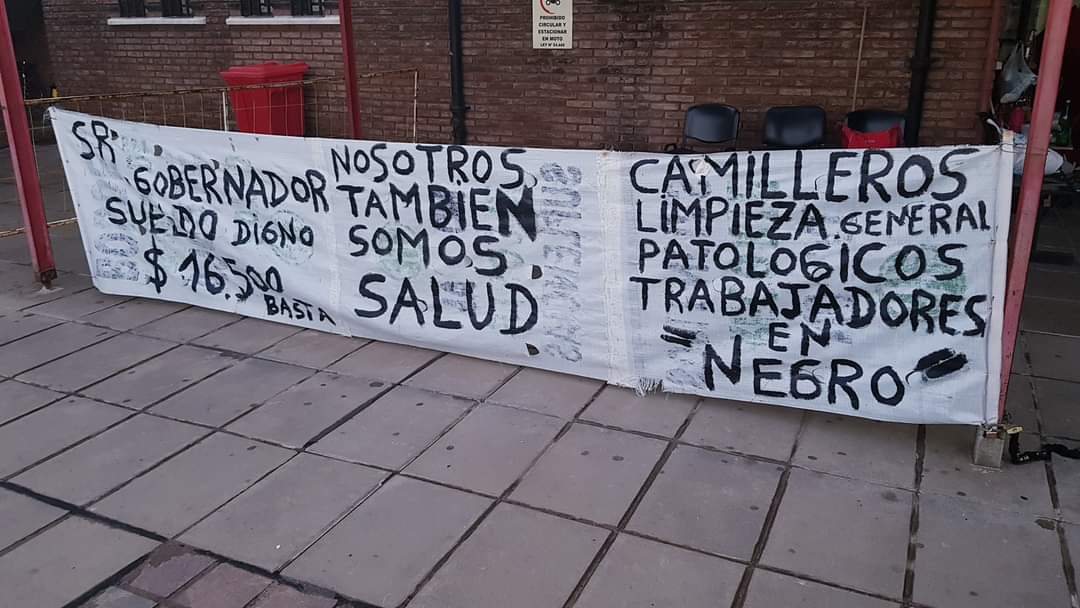 PROHIBIDO
CIRCULAR Y
ESTACIONAR
EN MOTO
SR.
GOBERNADOR
SUELDO DIGNO
$ 16.500
BASTA
NOSOTROS
TAMBIEN
SOMOS
SALUD
CAMILLEROS
LIMPIEZA. GENERAL
PATOLOGICOS
TRABAJADORES
EN
= NEGRO